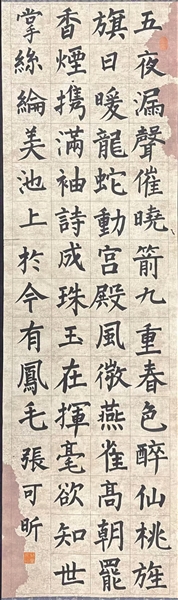 五夜漏聲催曉箭九重春色醉仙桃旌
旗日暖龍蛇動宮殿風微燕雀高朝罷
香煙攜滿袖詩成珠玉在揮毫欲知世
掌絲綸美池上於今有鳳毛 張可昕